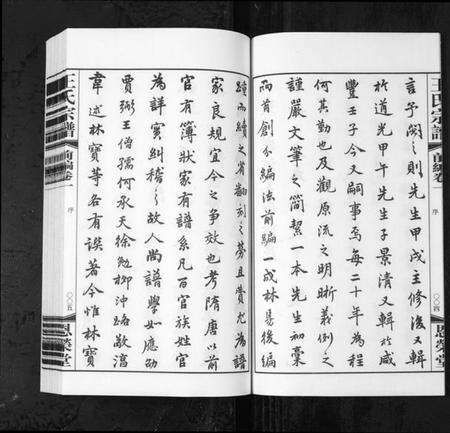 王氏宗譜
前編卷一
序
恩榮堂
言予闕之則先生甲戌主修後又輯
於道光甲午先生子景清又輯於咸
豐壬子今又嗣事焉每二十年為程
何其勤也及觀原流之明晰義例之
謹嚴文筆之簡絜一本先生初稾
而首創分編法前編一成林易後編
續而續之省翻刻之勞且費尤為譜
家良規宜今之爭效也考隋唐以前
官有簿狀家有譜系凡百官族姓官
為詳實糾稽之故人尚譜學如應劭
賈弼王僧孺何承天徐勉柳沖路敬淳
韋述林寶等各有譔著今惟林寶
王氏宗譜
前編卷一
序
恩榮堂